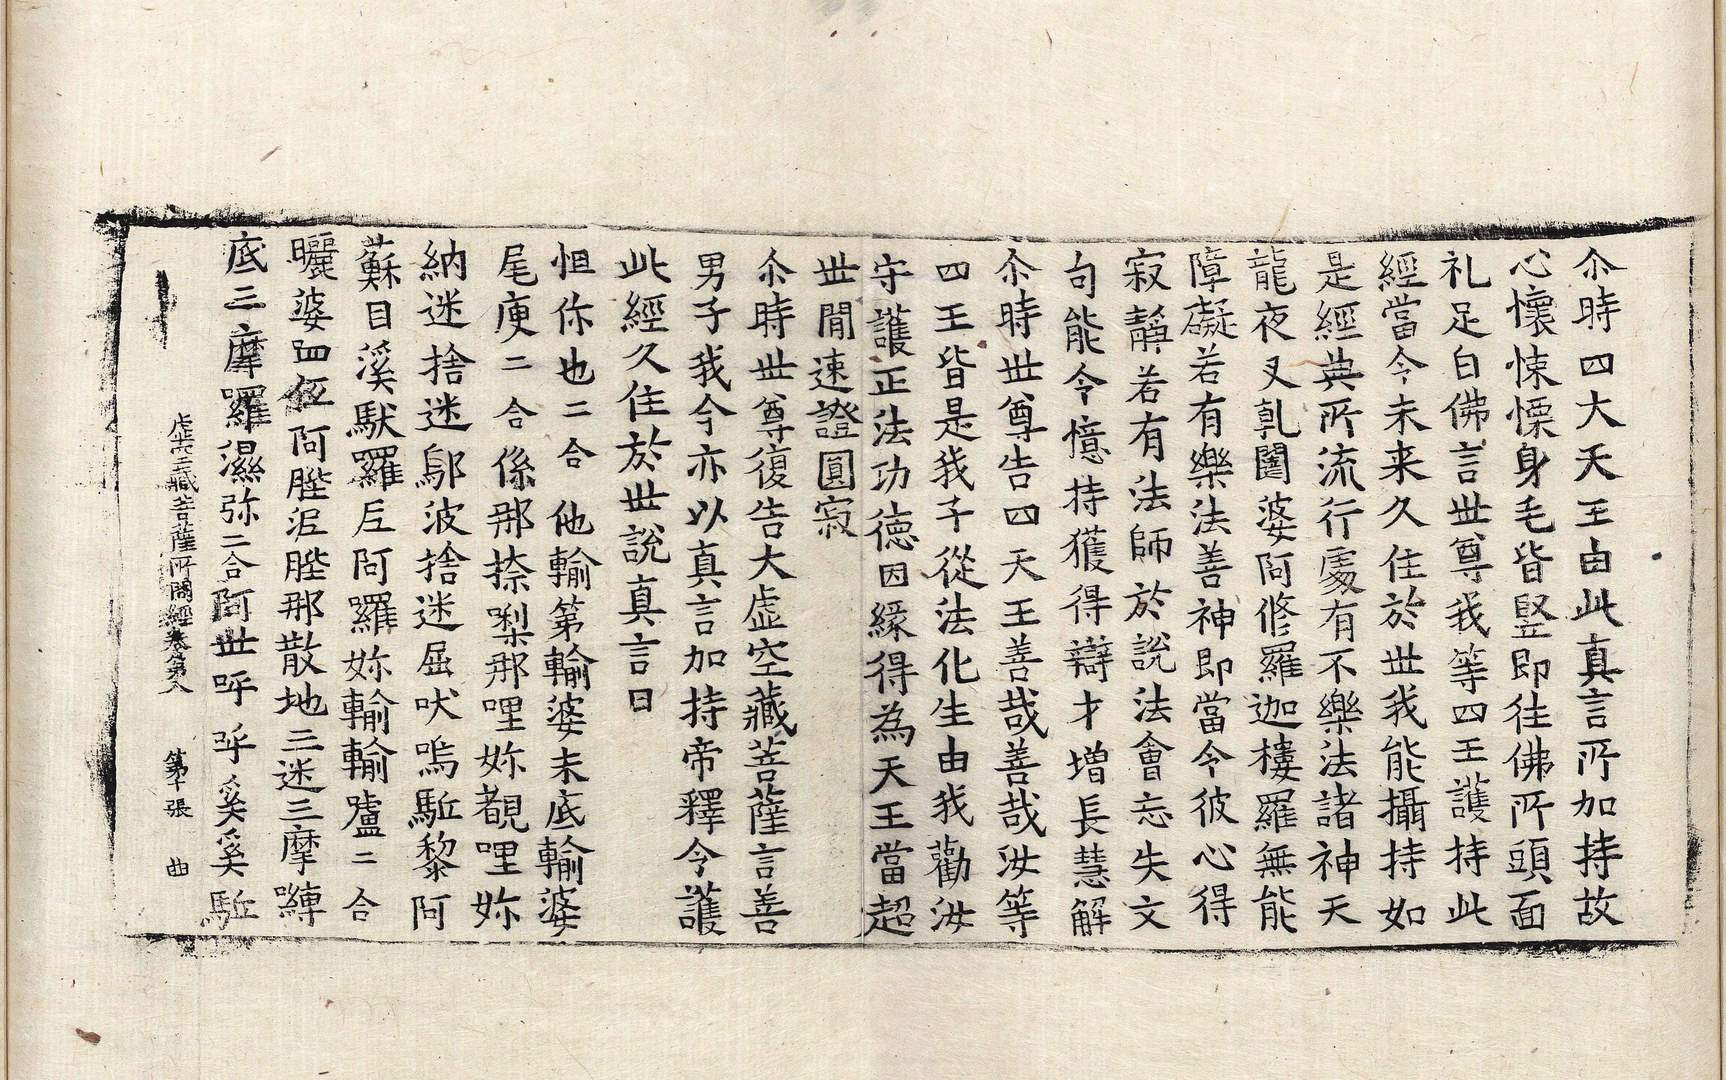 尒時四大天王由此真言所加持故
心懷悚慄身毛皆竪即往佛所頭面
礼足白佛言世尊我等四王護持此
經當令未来久住於世我能攝持如
是經典所流行處有不樂法諸神天
龍夜叉乹闥婆阿修羅迦樓羅無能
障礙若有樂法善神即當令彼心得
寂靜若有法師於說法會忘失文
句能令憶持獲得辯才增長慧解
尒時世尊告四天王善哉善哉汝等
四王皆是我子從法化生由我勸汝
守護正法功德因緣得為天王當超
世閒速證圓寂
尒時世尊復告大虛空藏菩薩言善
男子我今亦以真言加持帝釋令護
此經久住於世說真言曰
怛你也二合他輸第輸婆末底輸婆
尾庾二合係那捺㗚那哩妳覩哩妳
納迷捨迷鄔波捨迷屈吠嗚駈黎阿
蘇目溪馱羅尼阿羅妳輸輸 二合
曬婆四伍阿陛泥陛那散地三迷三摩囀
底三摩羅濕弥二合阿世呼呼奚奚駈
虛空藏菩薩所問經卷第八 第十張 曲